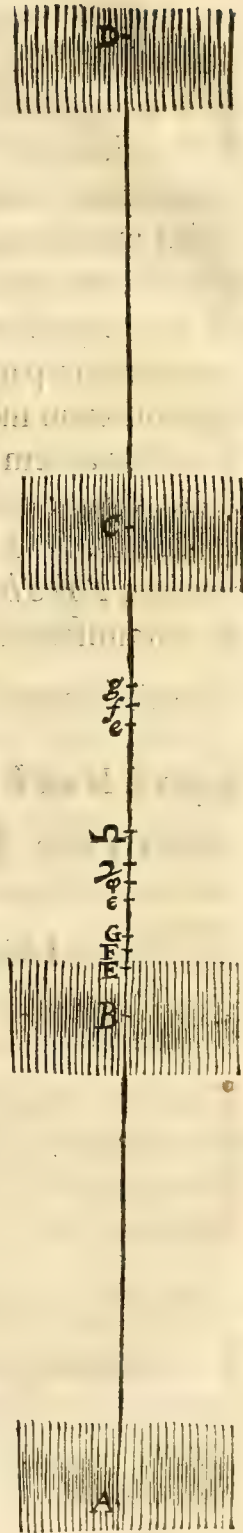 D
C
g
f
e
φ
ε
G
F
E
B
A